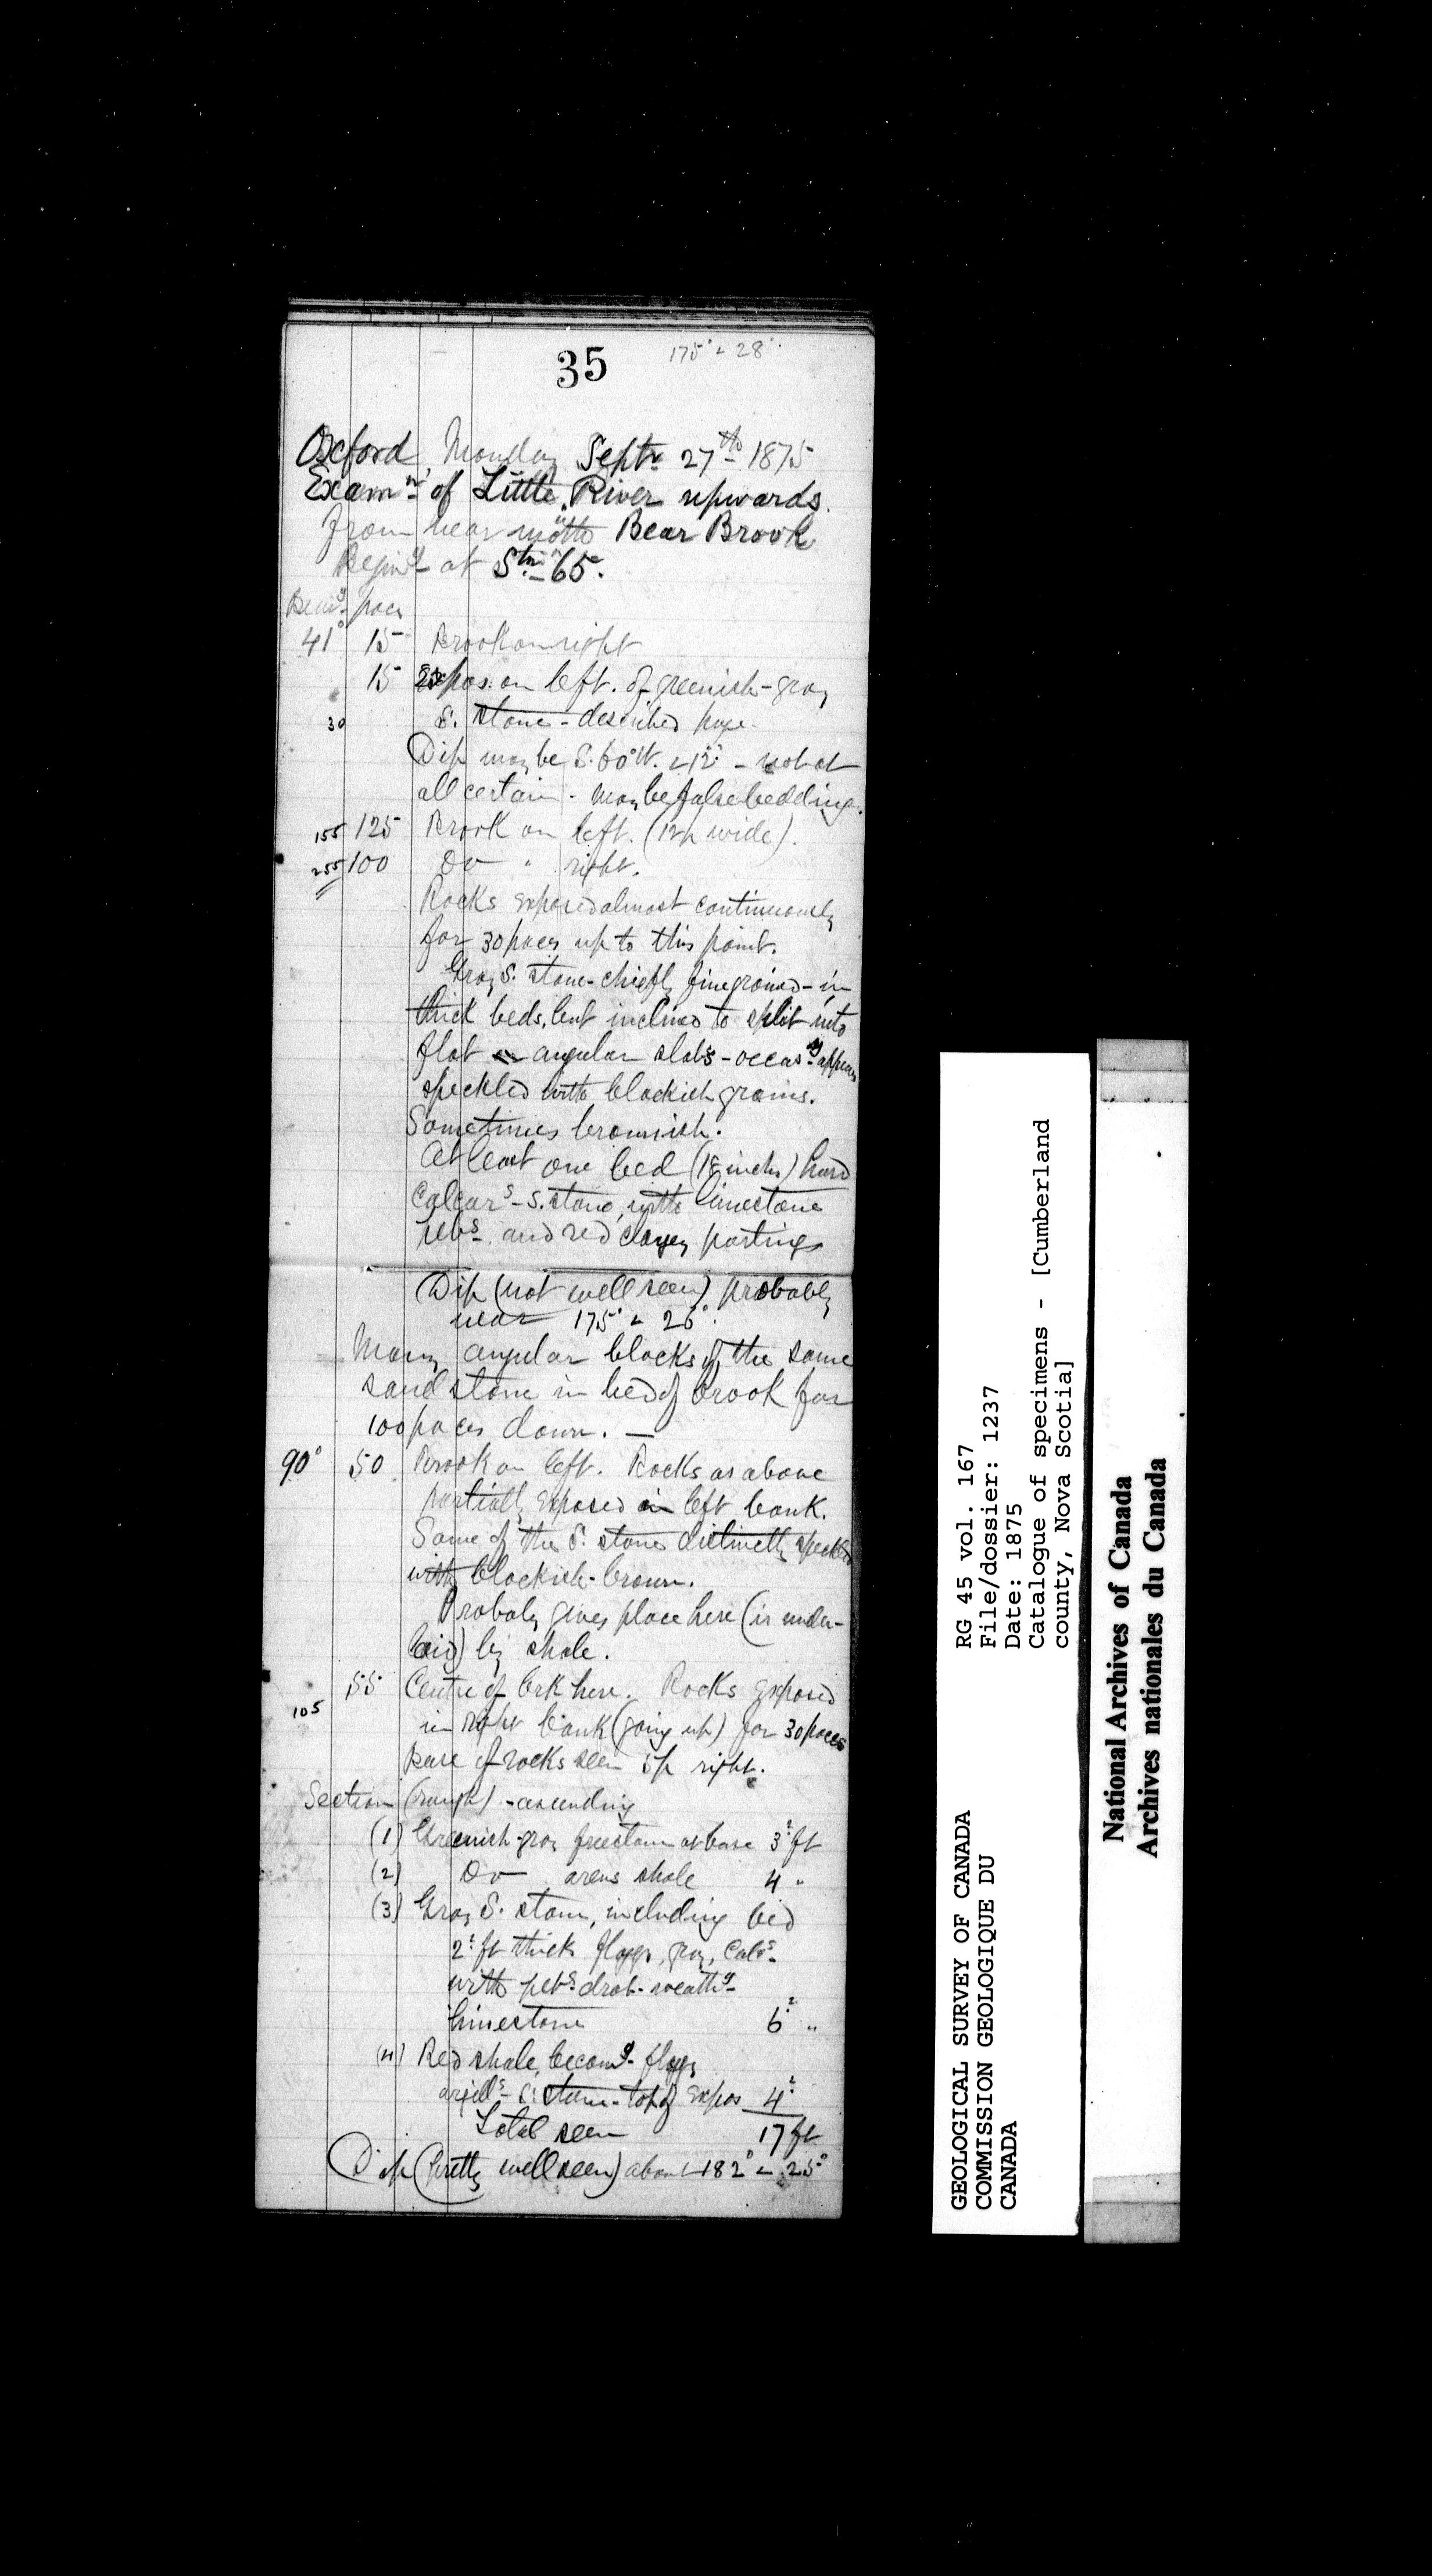 35
175° ∠ 28°
Oxford, Monday Septr 27th 1875
Examn of Little River upwards
from near mouth Bear Brook
Beging at Stn 65.
Bearg paces
41° 15 Brook on right
15 Expos. on left. of greenish-gray
30 S. stone - described page
Dip may be S. 60° W. ∠ 12° - not at
all certain - may be false bedding.
155 125 Brook on left. (12p wide).
255 100 Do " right.
Rocks exposed almost continuously
for 30 paces up to this point.
Gray S. stone - chiefly fine grained - in
thick beds, but inclined to split into
flat angular slabs - occasy appears
speckled with blackish grains.
Sometimes brownish.
At least one bed (18 inches) hard
Calcars - S. stone, with limestone
pebs and red clayey partings
Dip (not well seen) probably
near 175° ∠ 26°.
Many angular blocks of the same
sandstone in bed of brook for
100 paces down. —
90° 50 Brook on left. Rocks as above
partially exposed in left bank.
Some of the S. stone distinctly speckled
with blackish-brown.
Probaby gives place here (is under-
laid) by shale.
55 Centre of brk here. Rocks exposed
105 in right bank (going up) for 30 paces
Base of rocks seen 5p right.
Section (rough) - ascending
(1) Greenish-gray freestone at base 3? ft
(2) Do arens shale 4 "
(3) Gray S. stone, including bed
2? ft thick flaggy, gray, Calcs
with pebs drab-weathg
limestone 6? "
(4) Red shale, becomg flaggy
argills S. stone - top of expos 4?
Total seen 17 ft
Dip (pretty well seen) about 182° ∠ 25°
RG 45 vol. 167
File/dossier: 1237
Date: 1875
Catalogue of specimens - [Cumberland
county, Nova Scotia]
GEOLOGICAL SURVEY OF CANADA
COMMISSION GEOLOGIQUE DU
CANADA
National Archives of Canada
Archives nationales du Canada